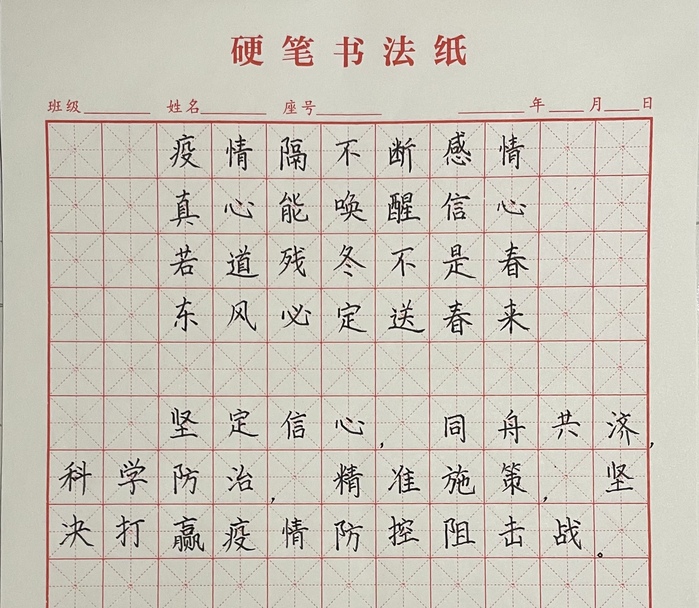 硬笔书法纸
班级 姓名 座号 年 月 日
疫情隔不断感情
真心能唤醒信心
若道残冬不是春
东风必定送春来
坚定信心，同舟共济，
科学防治，精准施策，坚
决打赢疫情防控阻击战。